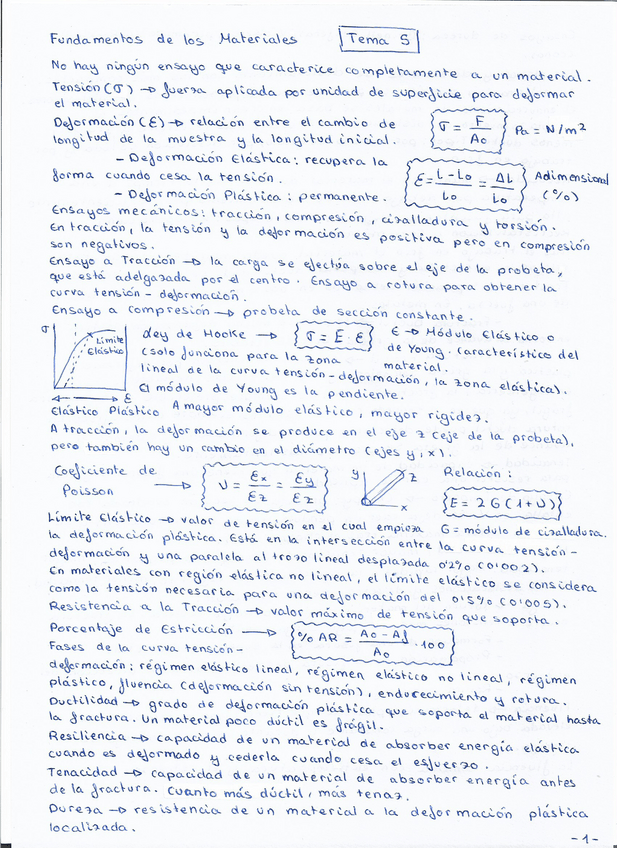 Fundamentos de los Materiales   Tema 5
No hay ningún ensayo que caracterice completamente a un material.
Tensión (σ) → fuerza aplicada por unidad de superficie para deformar
el material.
Deformación (ε) → relación entre el cambio de
longitud de la muestra y la longitud inicial.
σ = F / A₀   Pa = N/m²
- Deformación Elástica: recupera la
forma cuando cesa la tensión.
- Deformación Plástica: permanente.
ε = L - L₀ / L₀ = ΔL / L₀   Adimensional
(%)
Ensayos mecánicos: tracción, compresión, cizalladura y torsión.
En tracción, la tensión y la deformación es positiva pero en compresión
son negativos.
Ensayo a Tracción → la carga se efectúa sobre el eje de la probeta,
que está adelgazada por el centro. Ensayo a rotura para obtener la
curva tensión - deformación.
Ensayo a compresión → probeta de sección constante.
σ
Límite
Elástico
ε
Elástico Plástico
Ley de Hooke → σ = E · ε
(solo funciona para la zona
lineal de la curva tensión - deformación, la zona elástica).
E → Módulo Elástico o
de Young. Característico del
material.
El módulo de Young es la pendiente.
A mayor módulo elástico, mayor rigidez.
A tracción, la deformación se produce en el eje z (eje de la probeta),
pero también hay un cambio en el diámetro (ejes y, x).
Coeficiente de
Poisson → ν = εx / εz = εy / εz
y
z
x
Relación:
E = 2G(1+ν)
G = módulo de cizalladura.
Límite Elástico → valor de tensión en el cual empieza
la deformación plástica. Está en la intersección entre la curva tensión -
deformación y una paralela al trozo lineal desplazada 0'2% (0'002).
En materiales con región elástica no lineal, el límite elástico se considera
como la tensión necesaria para una deformación del 0'5% (0'005).
Resistencia a la Tracción → valor máximo de tensión que soporta.
Porcentaje de Estricción → % AR = A₀ - Af / A₀ · 100
Fases de la curva tensión -
deformación: régimen elástico lineal, régimen elástico no lineal, régimen
plástico, fluencia (deformación sin tensión), endurecimiento y rotura.
Ductilidad → grado de deformación plástica que soporta el material hasta
la fractura. Un material poco dúctil es frágil.
Resiliencia → capacidad de un material de absorber energía elástica
cuando es deformado y cederla cuando cesa el esfuerzo.
Tenacidad → capacidad de un material de absorber energía antes
de la fractura. Cuanto más dúctil, más tenaz.
Dureza → resistencia de un material a la deformación plástica
localizada.
-1-